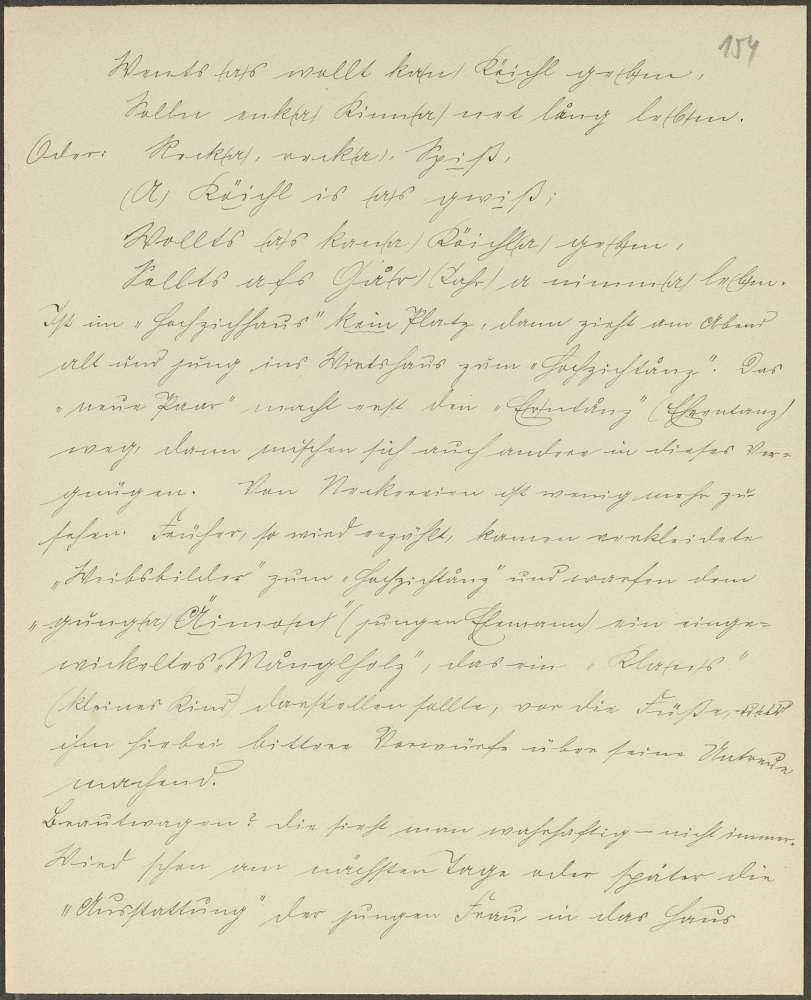 154
Wents (a)s wollt ka(n) Köichl ge(b)m,
Solln enk(a) Kinn(a) net lång le(b)m.
Oder: Rock(a), rock(a), Spiß,
(A) Köichl is (a)s gwiß;
Wollts (a)s kan(a) Köichl(a) ge(b)m,
Sollts afs Gå(r) (Jahr) a nimm(a) le(b)m.
Ist im „Hochzichhaus" kein Platz, dann zieht am Abend
alt und jung ins Wirtshaus zum „Hochzichtånz". Das
„neue Paar" macht erst den „Ehrntånz" (Ehrentanz)
weg, dann mischen sich auch andere in dieses Ver=
gnügen. Von Neckereien ist wenig mehr zu
sehen. Früher, so wird erzählt, kamen verkleidete
„Weibsbilder" zum „Hochzichtånz" und warfen dem
„gung(a) Äimo(n)" (jungen Ehemann) ein einge=
wickeltes „Månglholz", das ein „Kla(n)s"
(kleines Kind) darstellen sollte, vor die Füße,
ihm hiebei bittere Vorwürfe über seine Untreue
machend.
Brautwagen? Die sieht man wahrhaftig – nicht immer.
Wird schon am nächsten Tage oder später die
„Ausstattung" der jungen Frau in das Haus